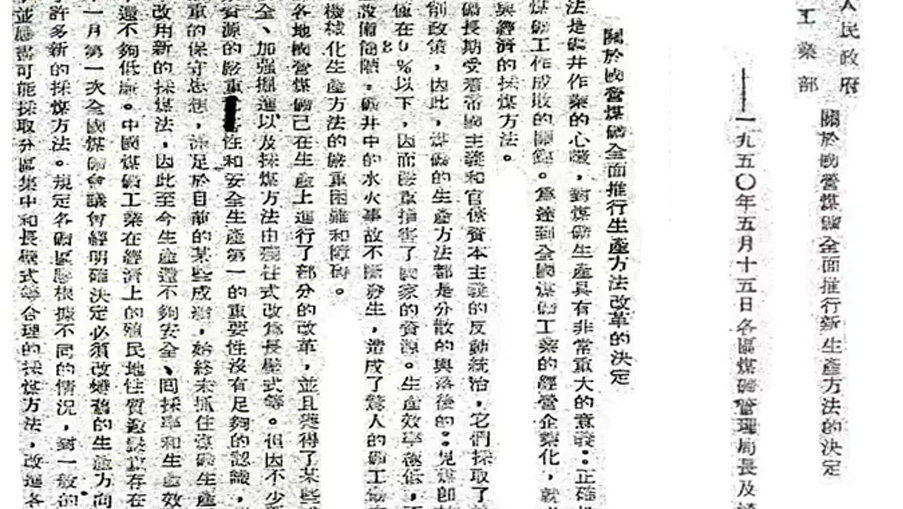 人民政府
工業部
關於國營煤礦全面推行新生產方法的決定
——一九五〇年五月十五日各區煤礦管理局長及
關於國營煤礦全面推行生產方法改革的決定
法是礦井作業的心臟，對煤礦生產具有非常重大的意義：正確
煤礦工作成敗的關鍵。為達到全國煤礦工業的經營企業化，就
與經濟的採煤方法。
礦長期受着帝國主義和官僚資本主義的反動統治，它們採取了
削政策，因此，煤礦的生產方法都是分散的與落後的：見煤即
僅在%以下，因而嚴重損害了國家的資源。生產效率極低，
設備簡陋，礦井中的水火事故不斷發生，造成了驚人的礦工
機械化生產方法的嚴重困難和障碍。
各地國營煤礦已在生產上進行了部分的改革，並且獲得了某些
全、加強掘進以及採煤方法由殘柱式改為長壁式等。但因不少
資源的嚴重性和安全生產第一的重要性沒有足夠的認識，
重的保守思想，滿足於目前的某些成績，始終未抓住煤礦生產
改用新的採煤法，因此至今生產還不夠安全、回採率和生產效
還不夠低廉。中國煤礦工業在經濟上的殖民地性質還嚴重存在
一月第一次全國煤礦會議曾經明確決定必須改變舊的生產方向
許多新的採煤方法。規定各礦區應根據不同的情況，對一般的
並應盡可能採取分區集中和長壁式等合理的採煤方法，改進各